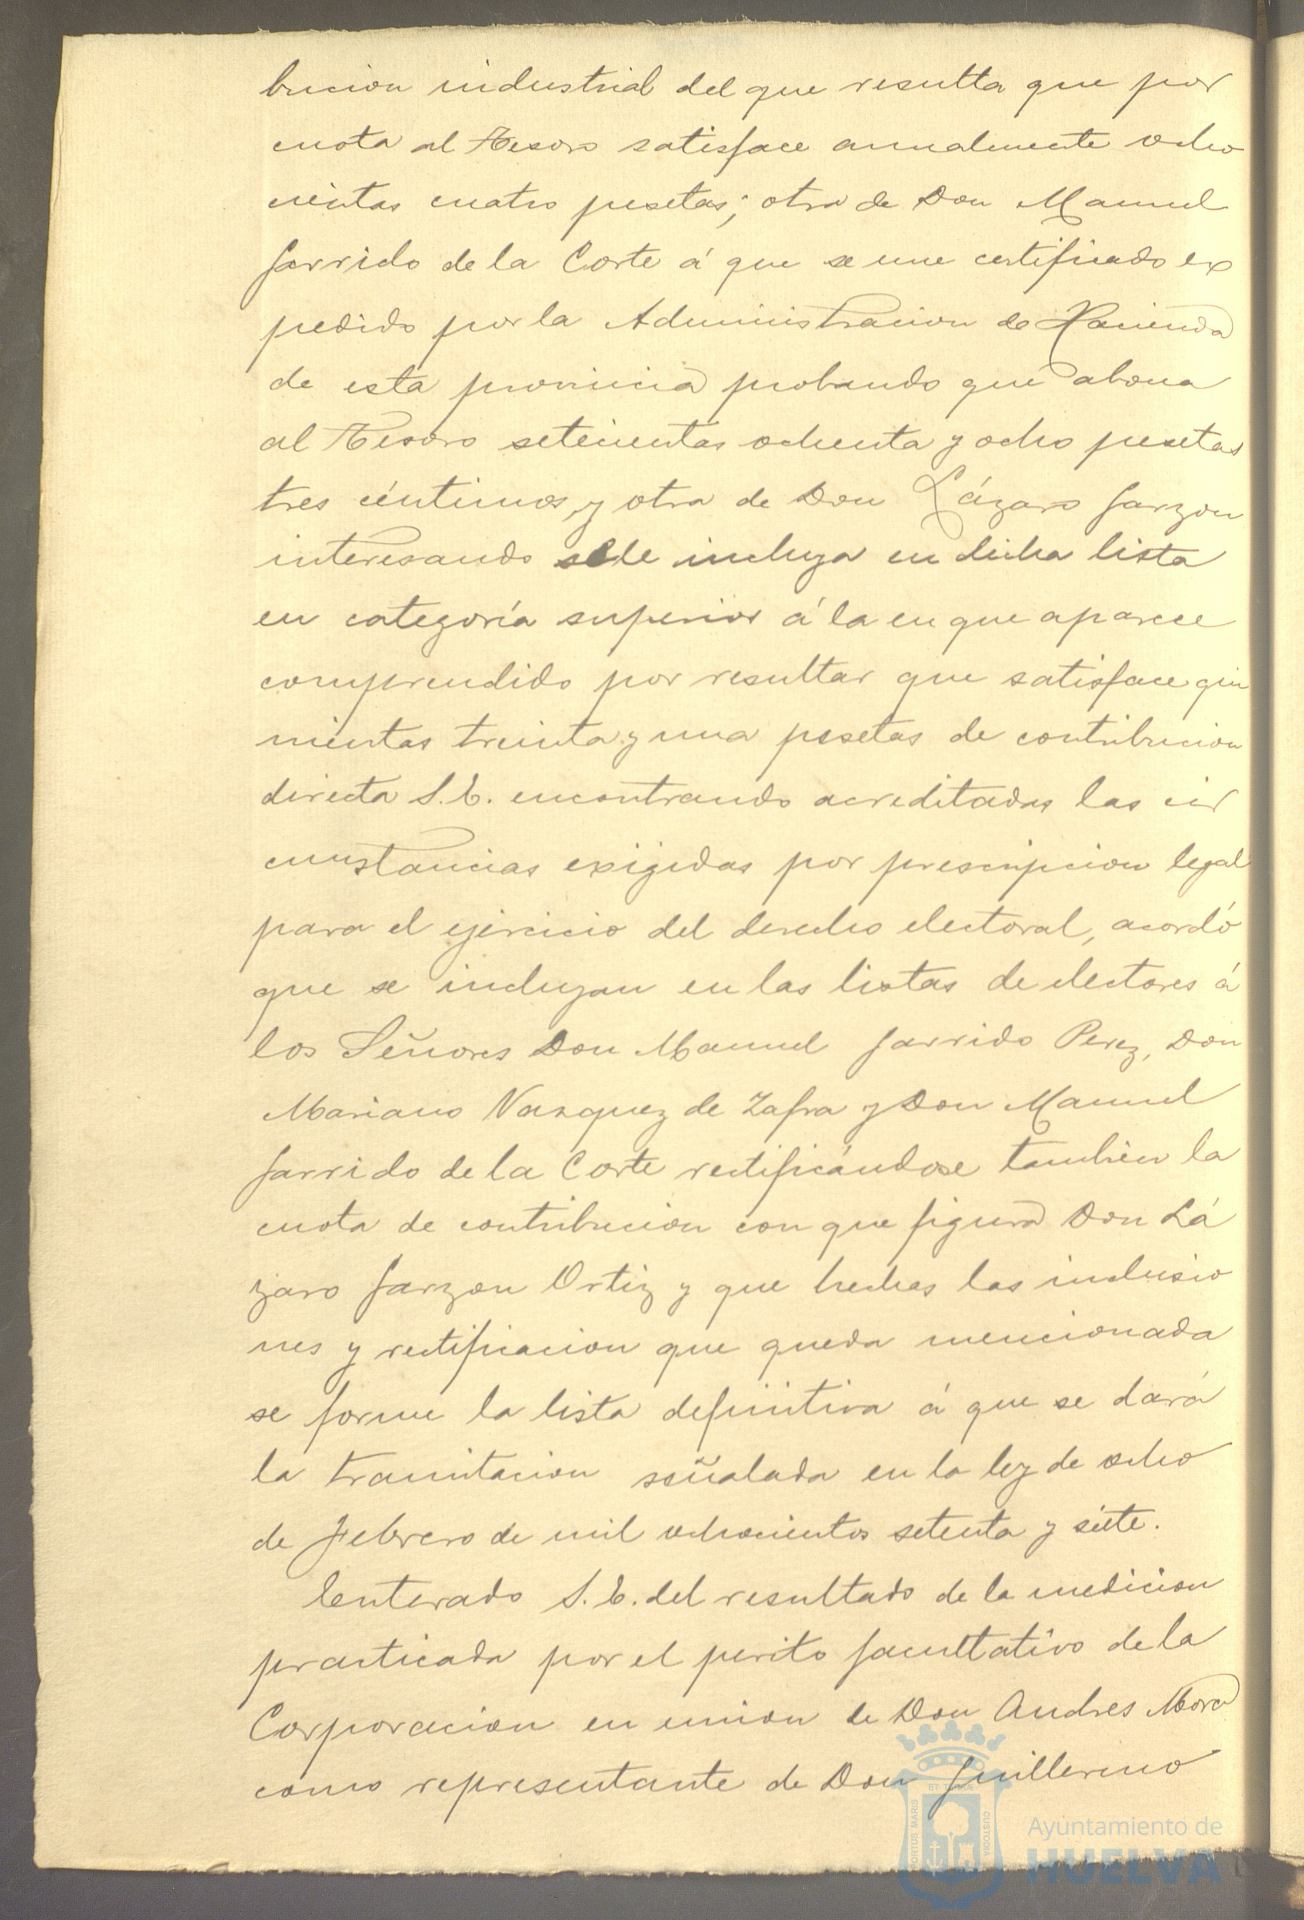 bucion industrial del que resulta que por
cuota al Tesoro satisface anualmente ocho
cientas cuatro pesetas; otra de Don Manuel
Garrido de la Corte á que se une certificado ex
pedido por la Administracion de Hacienda
de esta provincia probando que abona
al Tesoro setecientas ochenta y ocho pesetas
tres céntimos, y otra de Don Lázaro Garzon
interesando se le incluya en dicha lista
en categoría superior á la en que aparece
comprendido por resultar que satisface qui
nientas treinta y una pesetas de contribucion
directa S. E. encontrando acreditadas las cir
cunstancias exigidas por prescripcion legal
para el ejercicio del derecho electoral, acordó
que se incluyan en las listas de electores á
los Señores Don Manuel Garrido Perez, Don
Mariano Vazquez de Zafra y Don Manuel
Garrido de la Corte rectificándose tambien la
cuota de contribucion con que figura Don Lá
zaro Garzon Ortiz y que hechas las inclusio
nes y rectificacion que queda mencionada
se forme la lista definitiva á que se dará
la tramitacion señalada en la ley de ocho
de Febrero de mil ochocientos setenta y siete.
Enterado S. E. del resultado de la medicion
practicada por el perito facultativo de la
Corporacion en union de Don Andres Mora
como representante de Don Guillermo
PORTUS MARIS
ET
CUSTODIA
Ayuntamiento de
HUELVA